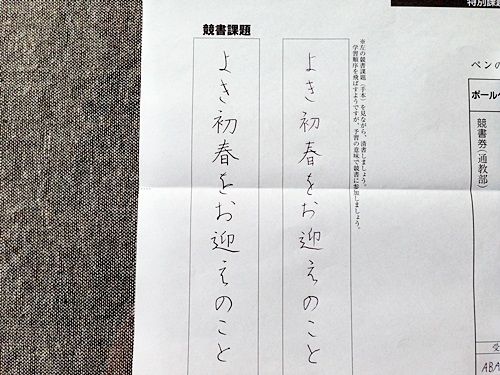 特別課題
ペンの
ボールペ
競書券(通教部)
受
ABA
※左の競書課題(手本)を見ながら、清書しましょう。
学習順序を飛ばすようですが、予習の意味で競書に参加しましょう。
よき初春をお迎えのこと
競書課題
よき初春をお迎えのこと